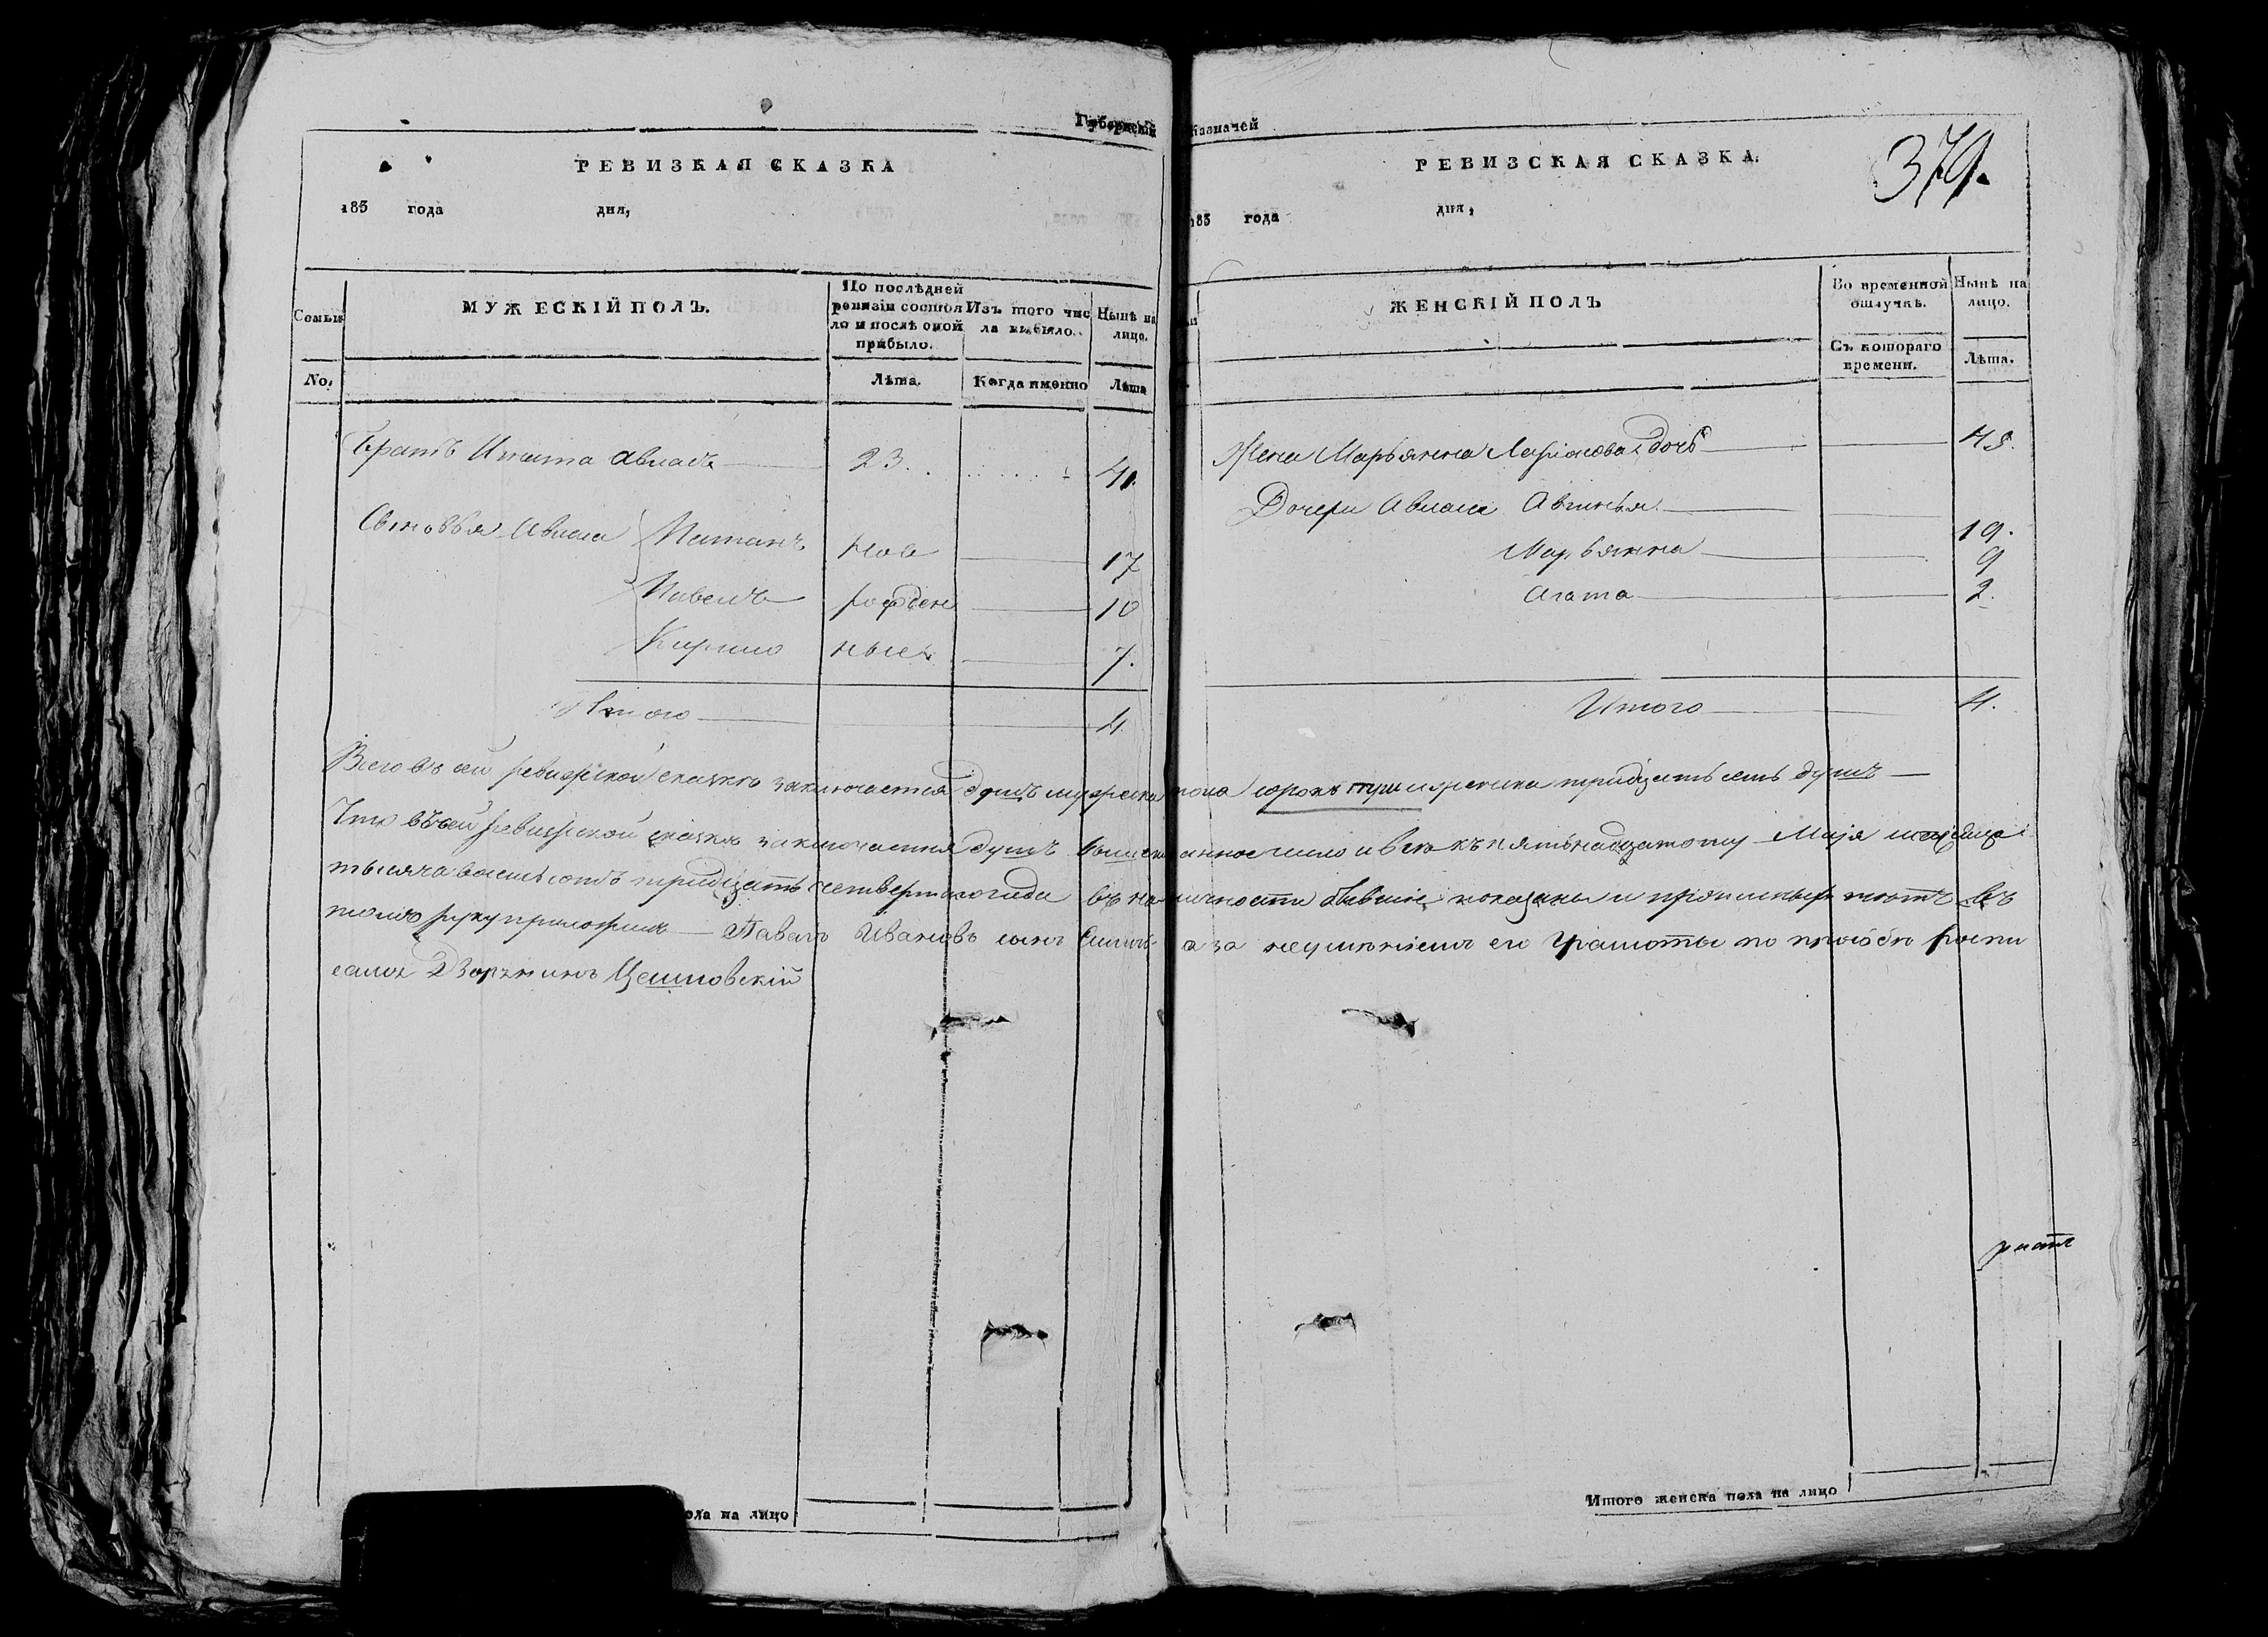 Губернскій Казначей
РЕВИЗКАЯ СКАЗКА
183 года дня,
Семьи
МУЖЕСКІЙ ПОЛЪ.
По послѣдней ревизіи состояло и послѣ оной прибыло.
Изъ того числа выбыло.
Нынѣ на лицо.
No.
Лѣта.
Когда именно
Лѣта
Братъ Авласъ 23. 41.
Сыновья Авласа
нов 17
Павелъ рожден 10
Кирило ныхъ 7.
Итого 4
РЕВИЗСКАЯ СКАЗКА.
379.
183 года дня,
ЖЕНСКІЙ ПОЛЪ
Во временной отлучкѣ.
Нынѣ на лицо.
Съ котораго времени.
Лѣта.
Жена Марьянна дочь
Дочери Авласа Авгинья 19.
Марьянна 9
Агата 2.
Итого 4.
Всего въ сей ревизской сказкѣ заключается душъ мужеска пола сорокъ три и женска тридцать семь душъ
Что въ сей ревизской сказкѣ заключается душъ число и всѣ къ пятьнадцатому Маія мѣсяца
тысяча восемь сотъ тридцать четвертаго года въ наличности бывшіе показаны и прописныхъ нѣтъ въ
томъ руку приложилъ Павалъ Ивановъ сынъ а за неумѣніемъ его грамоты по прозбѣ роспи
салса Дворянинъ
пола на лицо
Итого женска пола на лицо